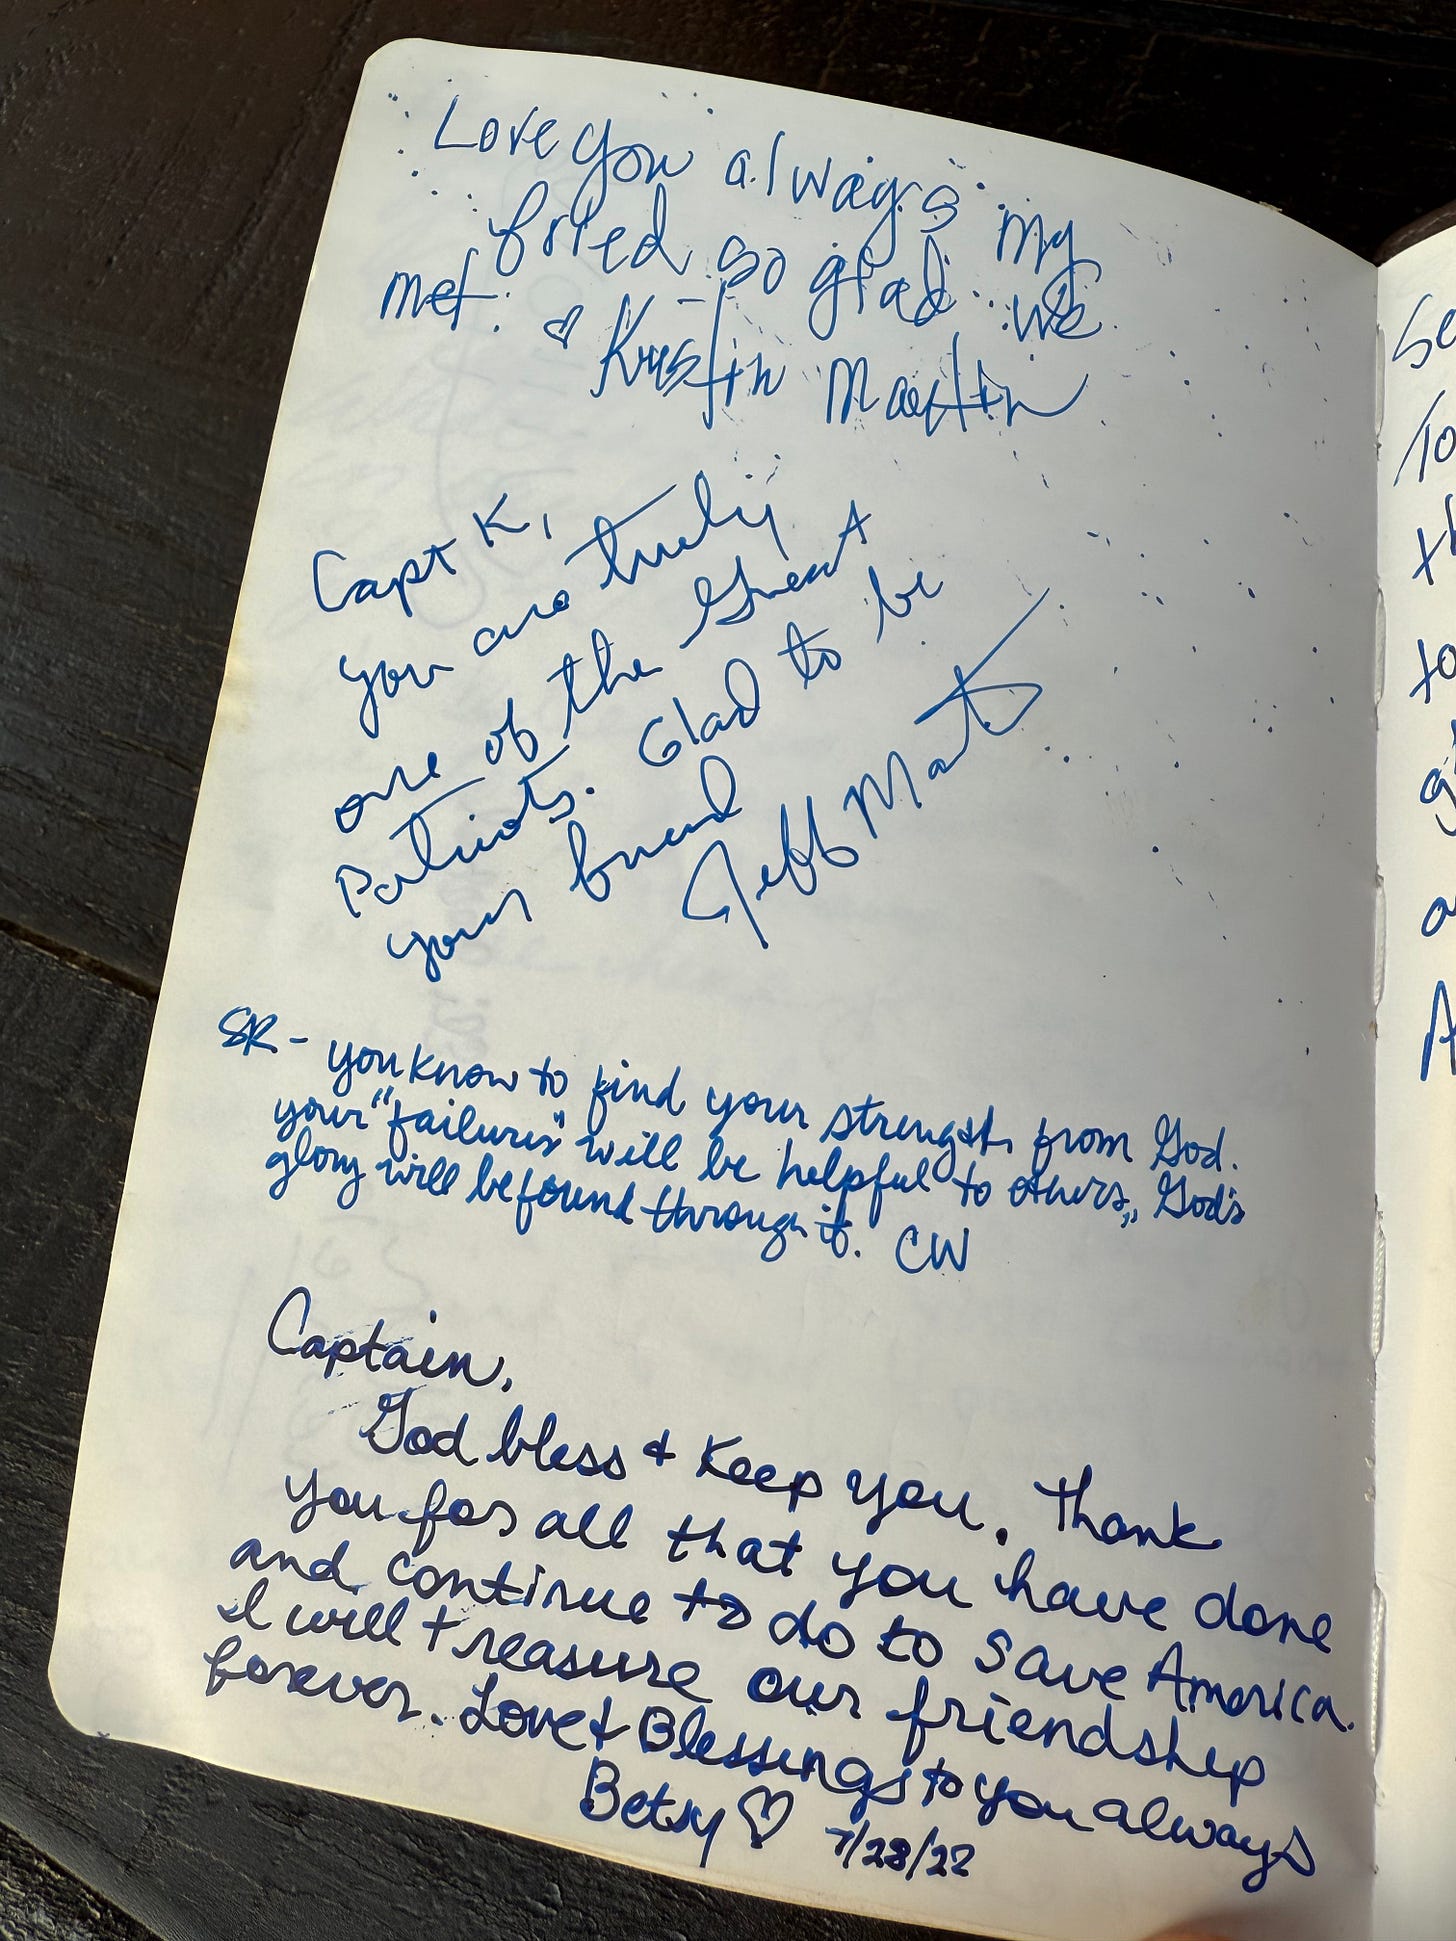 Love you always my
fried so glad we
met. ♡ Kristin Martin
Capt K,
you are truly
one of the Great
Patriots. Glad to be
your friend
Jeff Mart
SR - you know to find your strength from God.
your "failures" will be helpful to others,, God's
glory will be found through it. CW
Captain,
God bless & Keep you. Thank
you for all that you have done
and continue to do to save America.
I will treasure our friendship
forever. Love & Blessings to you always
Betsy ♡ 7/28/22
Se
To
th
to
a
A